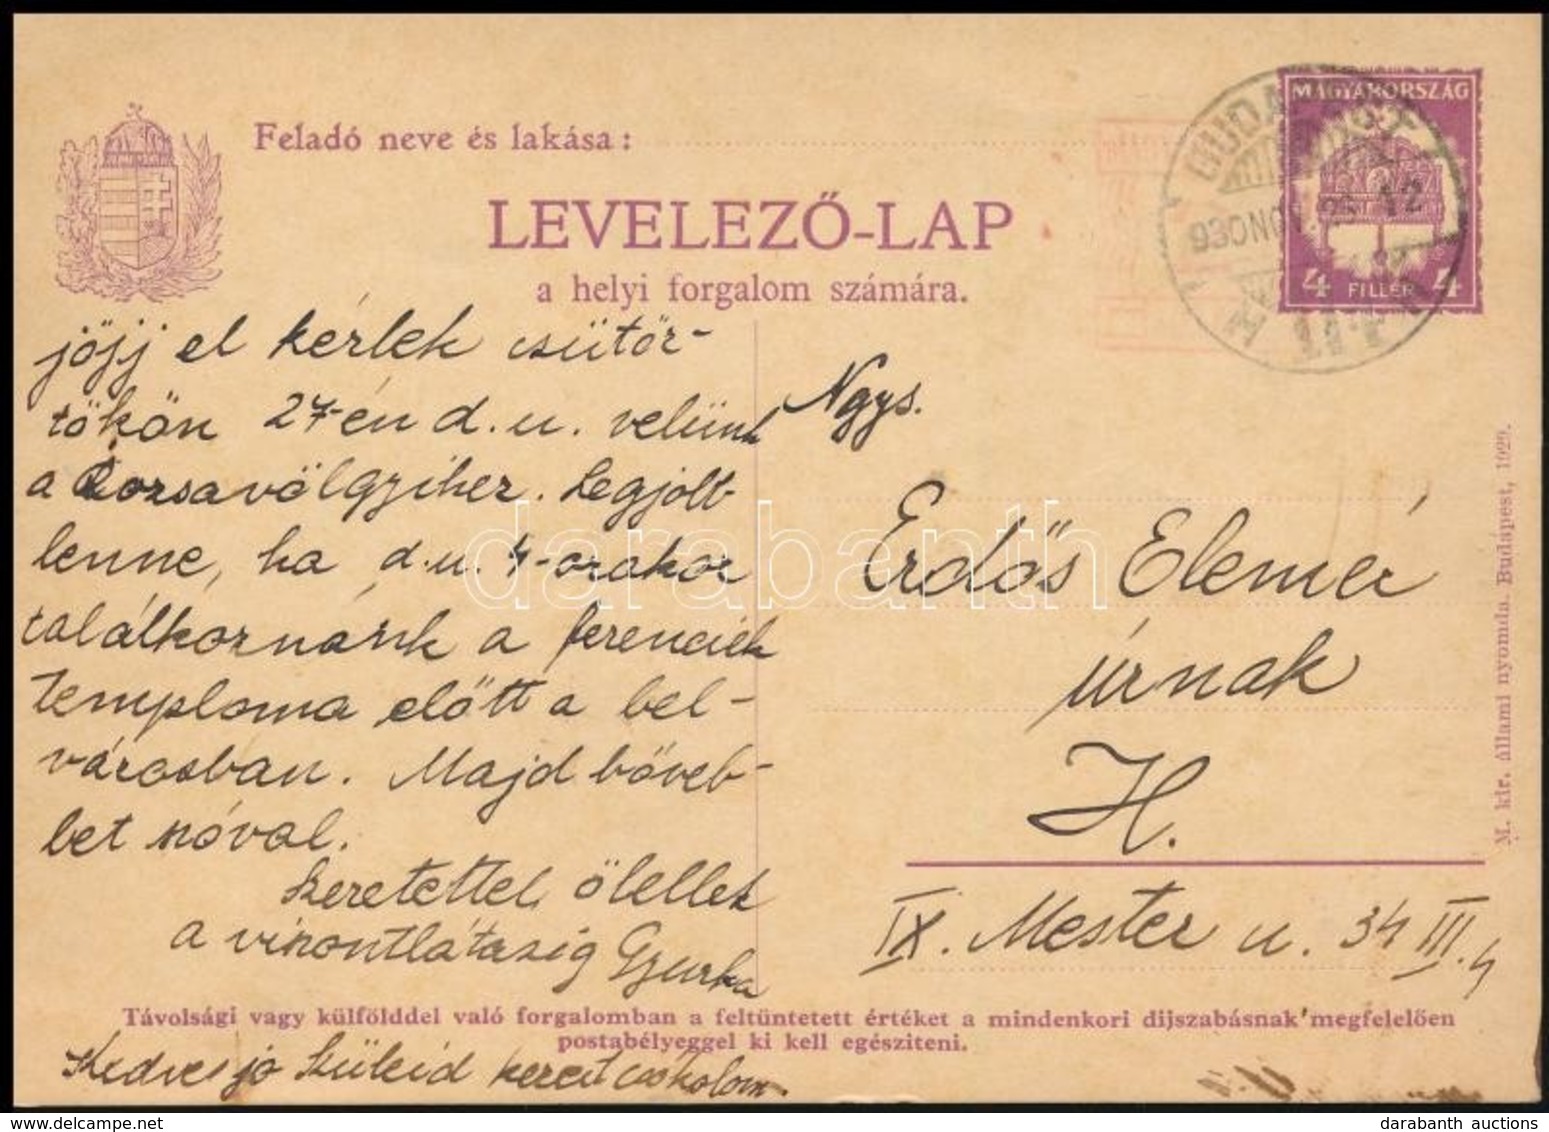 MAGYARORSZÁG
Feladó neve és lakása:
BUDAPEST
LEVELEZŐ-LAP
930 NOV. 12
a helyi forgalom számára.
4 FILLÉR 4
jöjj el kérlek csütör-
tökön 27-én d.u. velünk
a Rozsavölgyihez. Legjobb
lenne, ha d.u. 4-orakor
találkoznánk a ferenciek
temploma előtt a bel-
városban. Majd bőveb-
bet szóval.
Szeretettel ölellek
a viszontlátásig Gyurka
Ngys.
Erdős Elemér
úrnak
H.
IX. Mester u. 34 III. 4
M. kir. állami nyomda. Budapest, 1929.
Távolsági vagy külfölddel való forgalomban a feltüntetett értéket a mindenkori dijszabásnak megfelelően
postabélyeggel ki kell egésziteni.
Kedves jó Szüleid kezeit csókolom.
darabanth
darabanth auctions